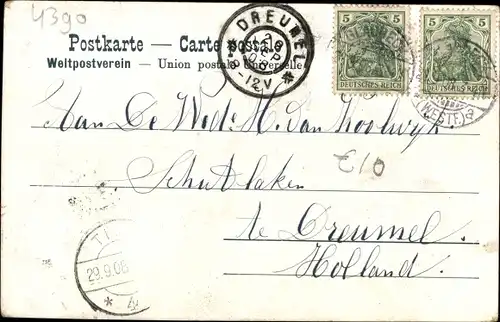 4390
Postkarte — Carte postale
Weltpostverein – Union postale Universelle
DREUMEL
8-12V
5 5
5 5
DEUTSCHES REICH
DEUTSCHES REICH
(WESTF)
Aan De Wede M. van
£10
te Dreumel.
Holland.
29.9.08